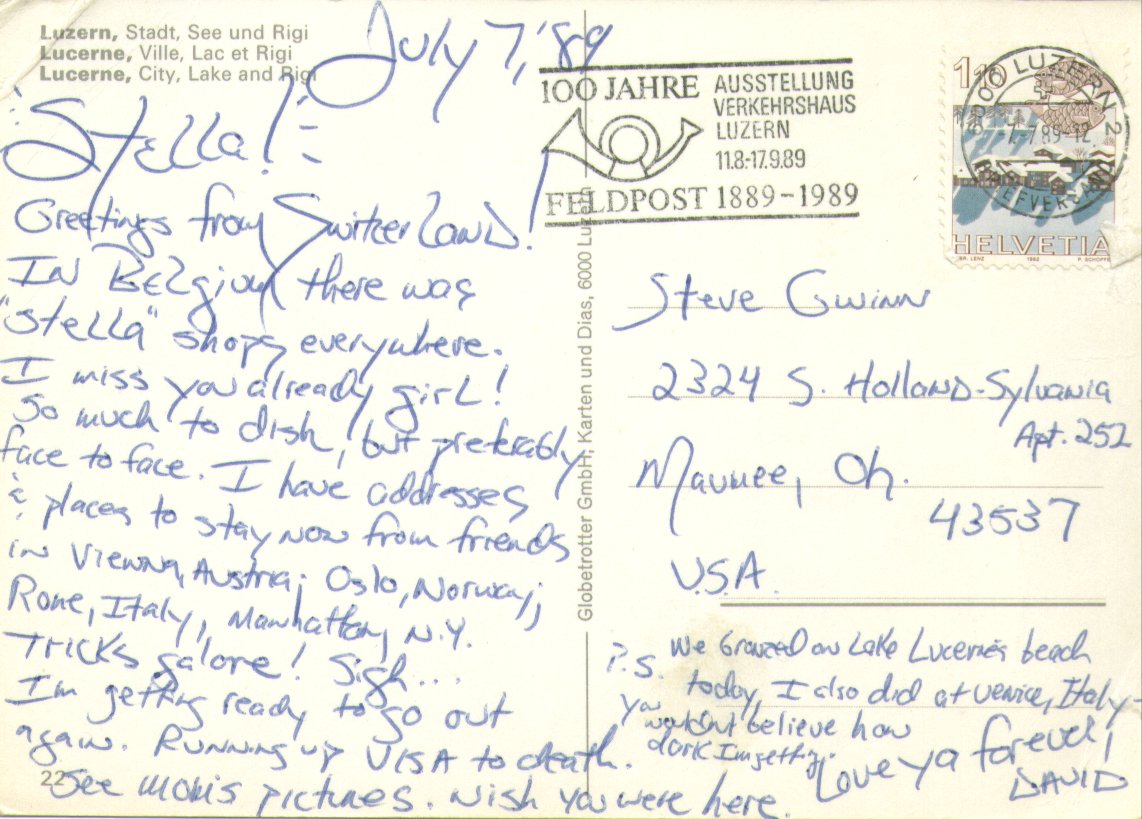 Luzern, Stadt, See und Rigi
Lucerne, Ville, Lac et Rigi
Lucerne, City, Lake and Rigi
July 7, '89
Stella!
Greetings from Switzerland!
In Belgium there was
"Stella" shops everywhere.
I miss you already girl!
So much to dish, but preferably
face to face. I have addresses
& places to stay now from friends
in Vienna, Austria; Oslo, Norway;
Rome, Italy, Manhattan, N.Y.
Tricks galore! Sigh...
I'm getting ready to go out
again. Running up VISA to death.
See mom's pictures. Wish you were here.
22
Globetrotter GmbH, Karten und Dias, 6000 Luzern
100 JAHRE
FELDPOST 1889-1989
AUSSTELLUNG
VERKEHRSHAUS
LUZERN
11.8.-17.9.89
6000 LUZERN 2
7.-7.89-12
BRIEFVERSAND
110
HELVETIA
BR. LENZ 1982 P. SCHOPFE
Steve Gwinn
2324 S. Holland-Sylvania
Apt. 252
Maumee, Oh.
43537
U.S.A.
P.S. We on Lake Lucerne's beach
today, I also did at Venice, Italy
you wouldn't believe how
dark I'm getting.
Love ya forever!
DAVID